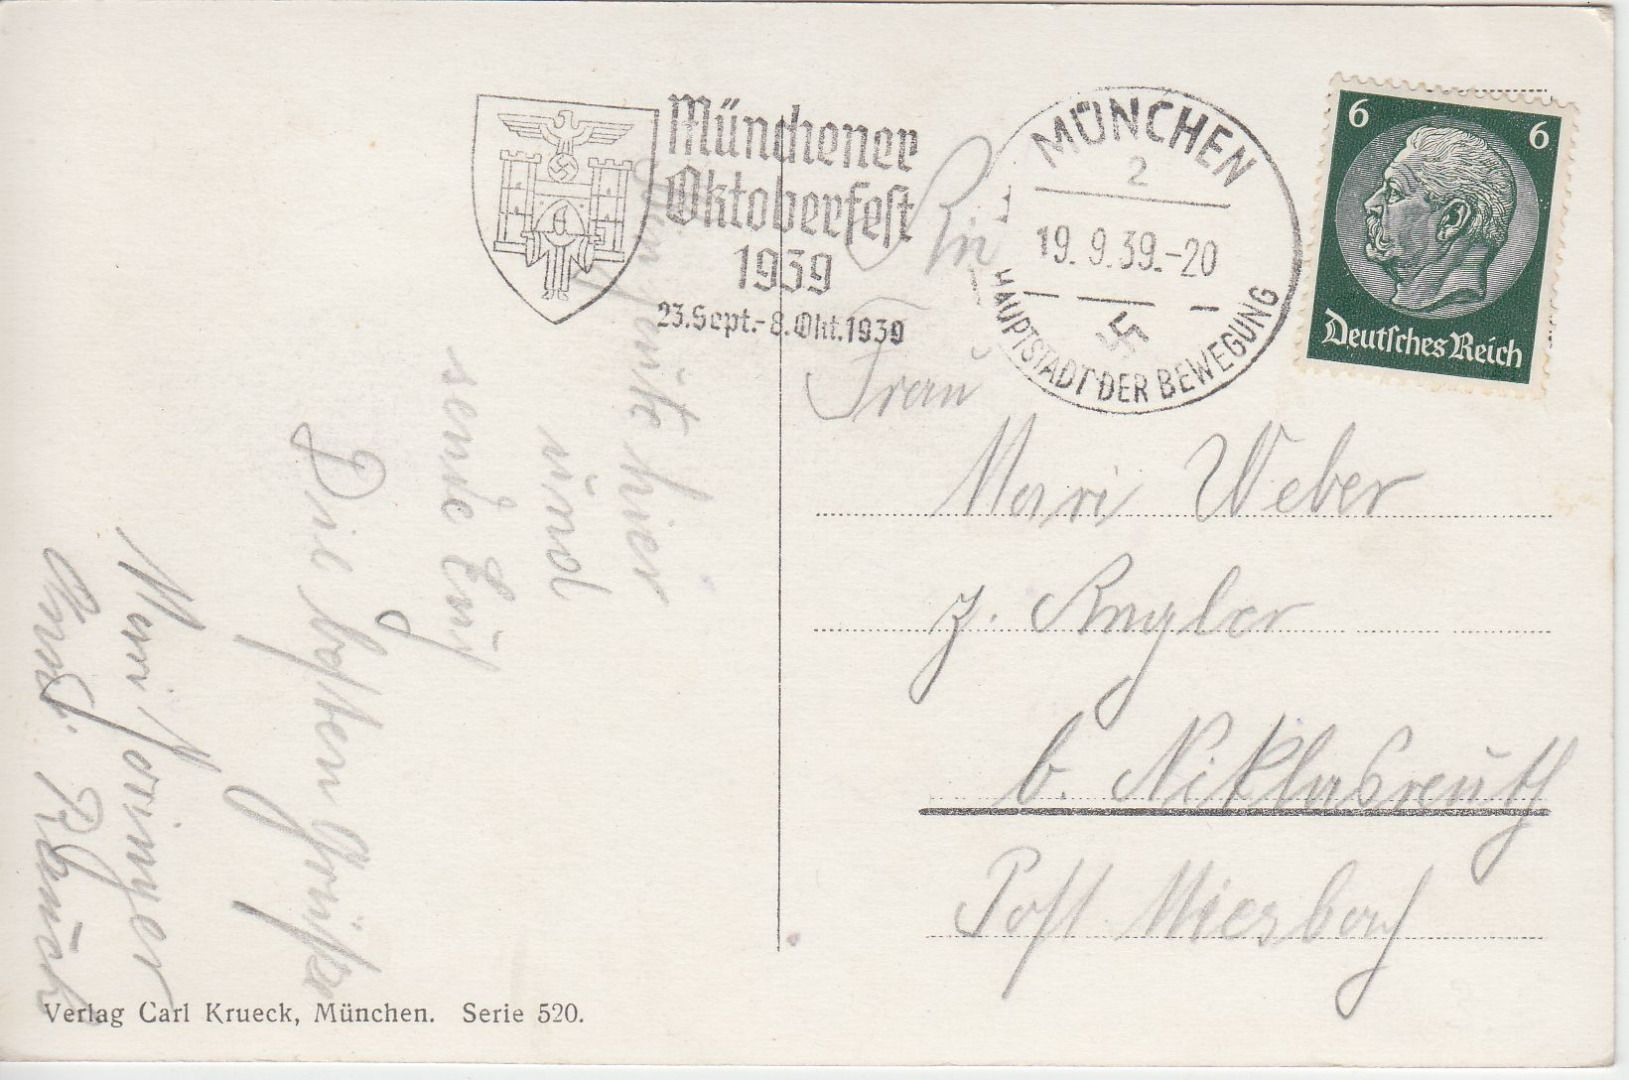 Münchener
Oktoberfest
1939
23.Sept.-8.Okt.1939
MÜNCHEN
2
19.9.39.-20
HAUPTSTADT DER BEWEGUNG
6 6
Deutsches Reich
hier
und
sende Euch
Die besten Grüße
Mari
An
Frau
Mari Weber
z.
b. Niklasreuth
Post Miesbach
Verlag Carl Krueck, München. Serie 520.